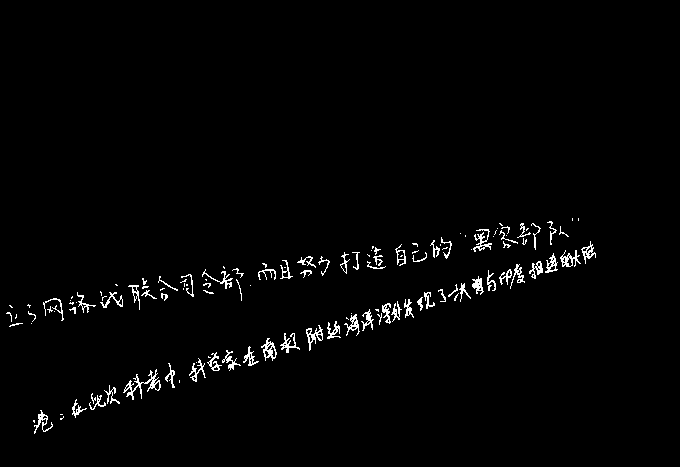 立了网络战联合司令部,而且努力打造自己的“黑客部队”
:在此次科考中,科学家在南极附近海洋深处发现了一块曾与印度相连的大陆